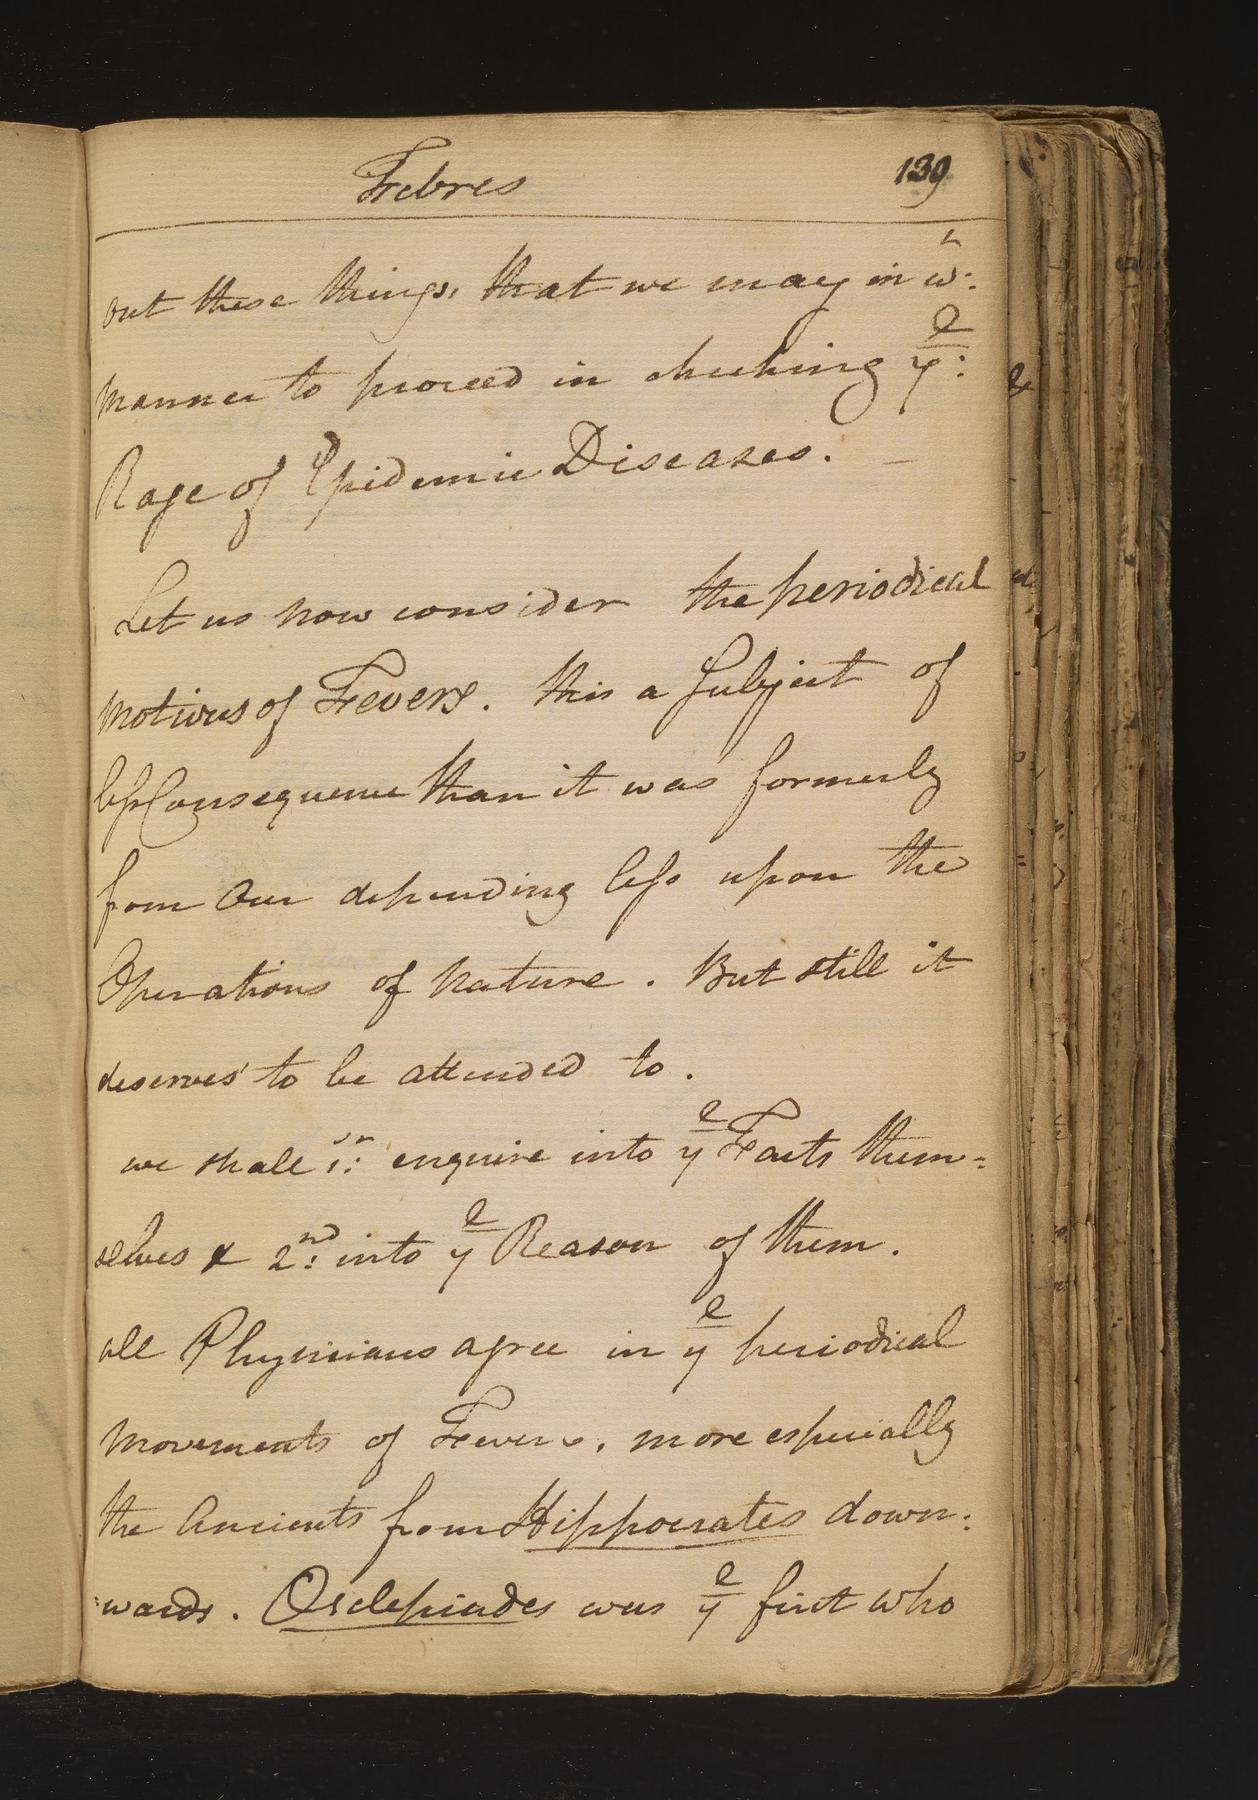 Febres 139
out these things, that we may in w.ʰ
manner to proceed in checking yᵉ:
Rage of Epidemic Diseases. —
Let us now consider the periodical
motives of Fevers. this a Subject of
less Consequence than it was formerly
from Our depending less upon the
Operations of Nature. But still it
deserves to be attended to.
we shall 1ˢᵗ: enquire into yᵉ Facts them=
selves & 2ⁿᵈ: into yᵉ Reason of them.
all Physicians agree in yᵉ periodical
movements of Fevers, more especially
the Ancients from Hippocrates down:
:wards. Asclepiades was yᵉ first who